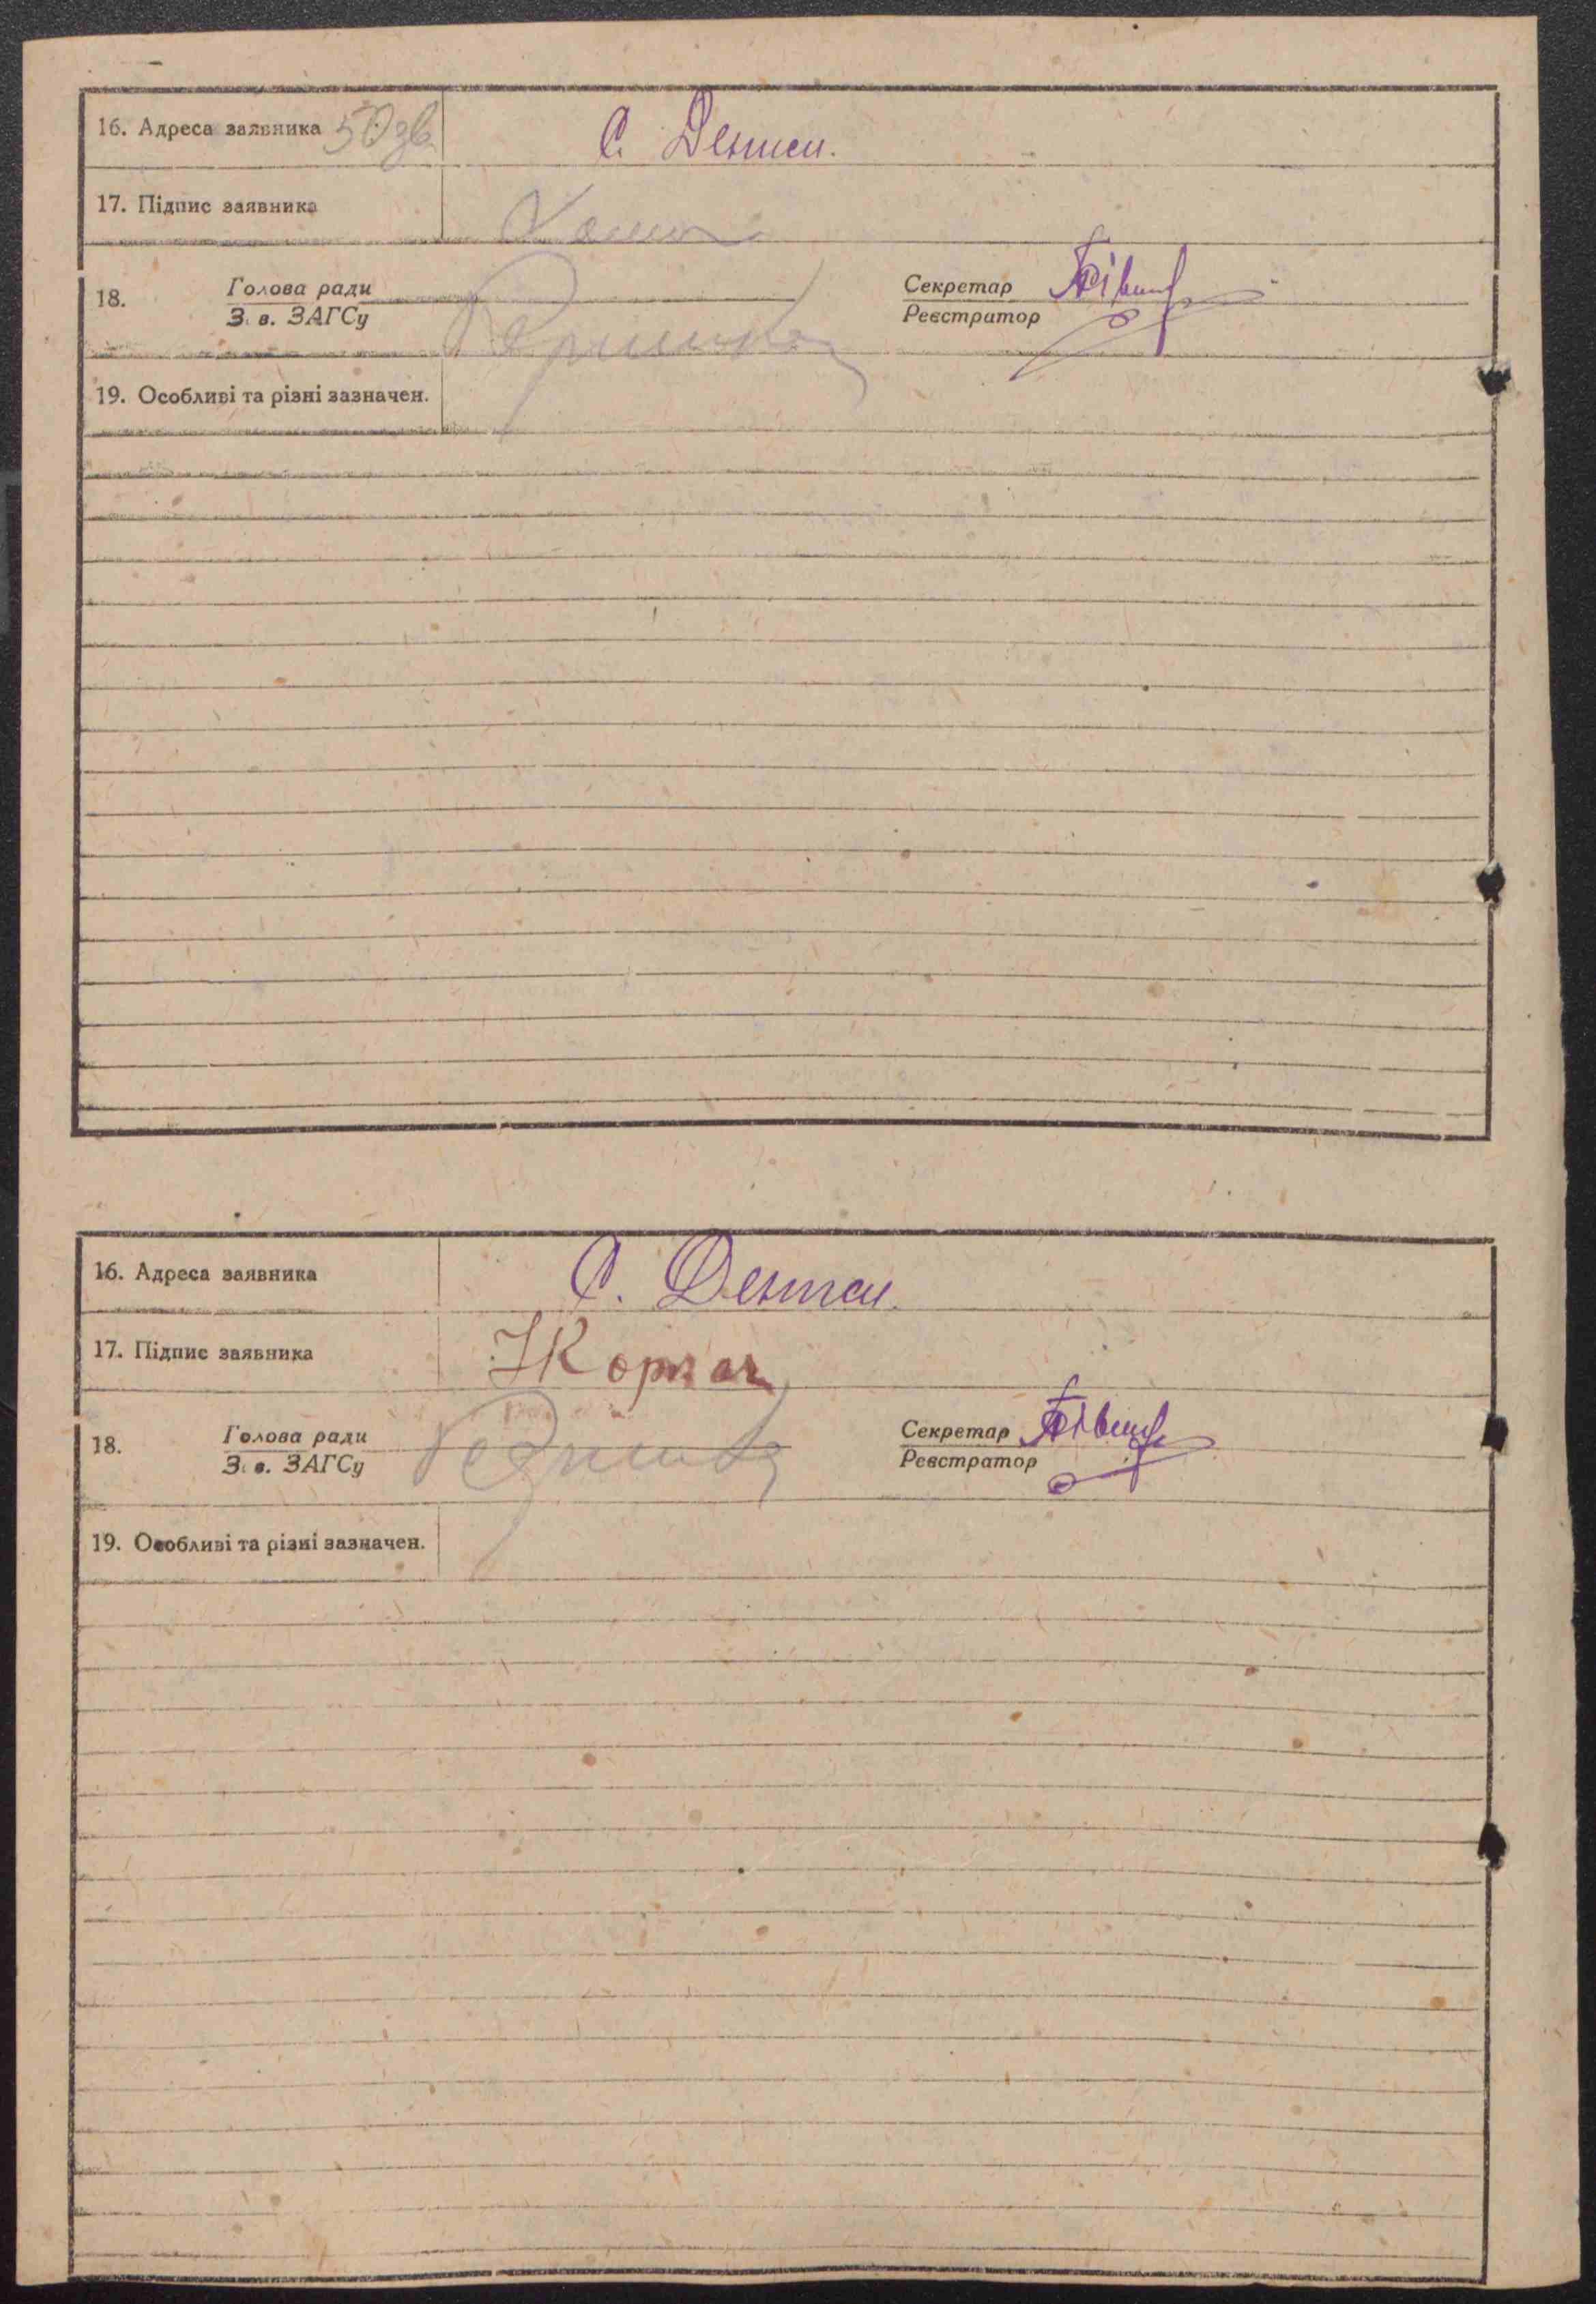 16. Адреса заявника 50зв
С. Дентси.
17. Підпис заявника
18. Голова ради
З. в. ЗАГСу
Секретар
Реєстратор
19. Особливі та різні зазначен.
16. Адреса заявника
С. Дентси.
17. Підпис заявника
18. Голова ради
З. в. ЗАГСу
Секретар
Реєстратор
19. Особливі та різні зазначен.